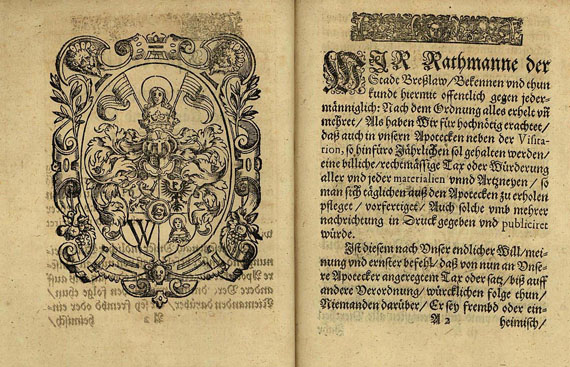 W
WIR Rathmanne der
Stadt Breßlaw/ Bekennen vnd thun
kunde hiermit offentlich gegen jeder-
männiglich: Nach dem Ordnung alles erhelt vñ
mehret/ Als haben Wir für hochnötig erachtet/
daß auch in vnsern Apotecken neben der Visita-
tion, so hinfüro Jährlichen sol gehalten werden/
eine billiche/ rechtmässige Tax oder Würderung
aller vnd jeder materialien vnnd Artzneyen/ so
man sich täglichen auß den Apotecken zu erholen
pfleget/ vorfertiget/ Auch solche vmb mehrer
nachrichtung in Druck gegeben vnd publiciret
würde.
Ist diesem nach Vnser endlicher Will/ mei-
nung vnd ernster befehl/ daß von nun an Vnse-
re Apotecker angeregtem Tax oder satz/ biß auff
andere Verordnung/ würcklichen folge thun/
Niemanden darüber/ Er sey frembd oder ein-
A 2 heimisch/